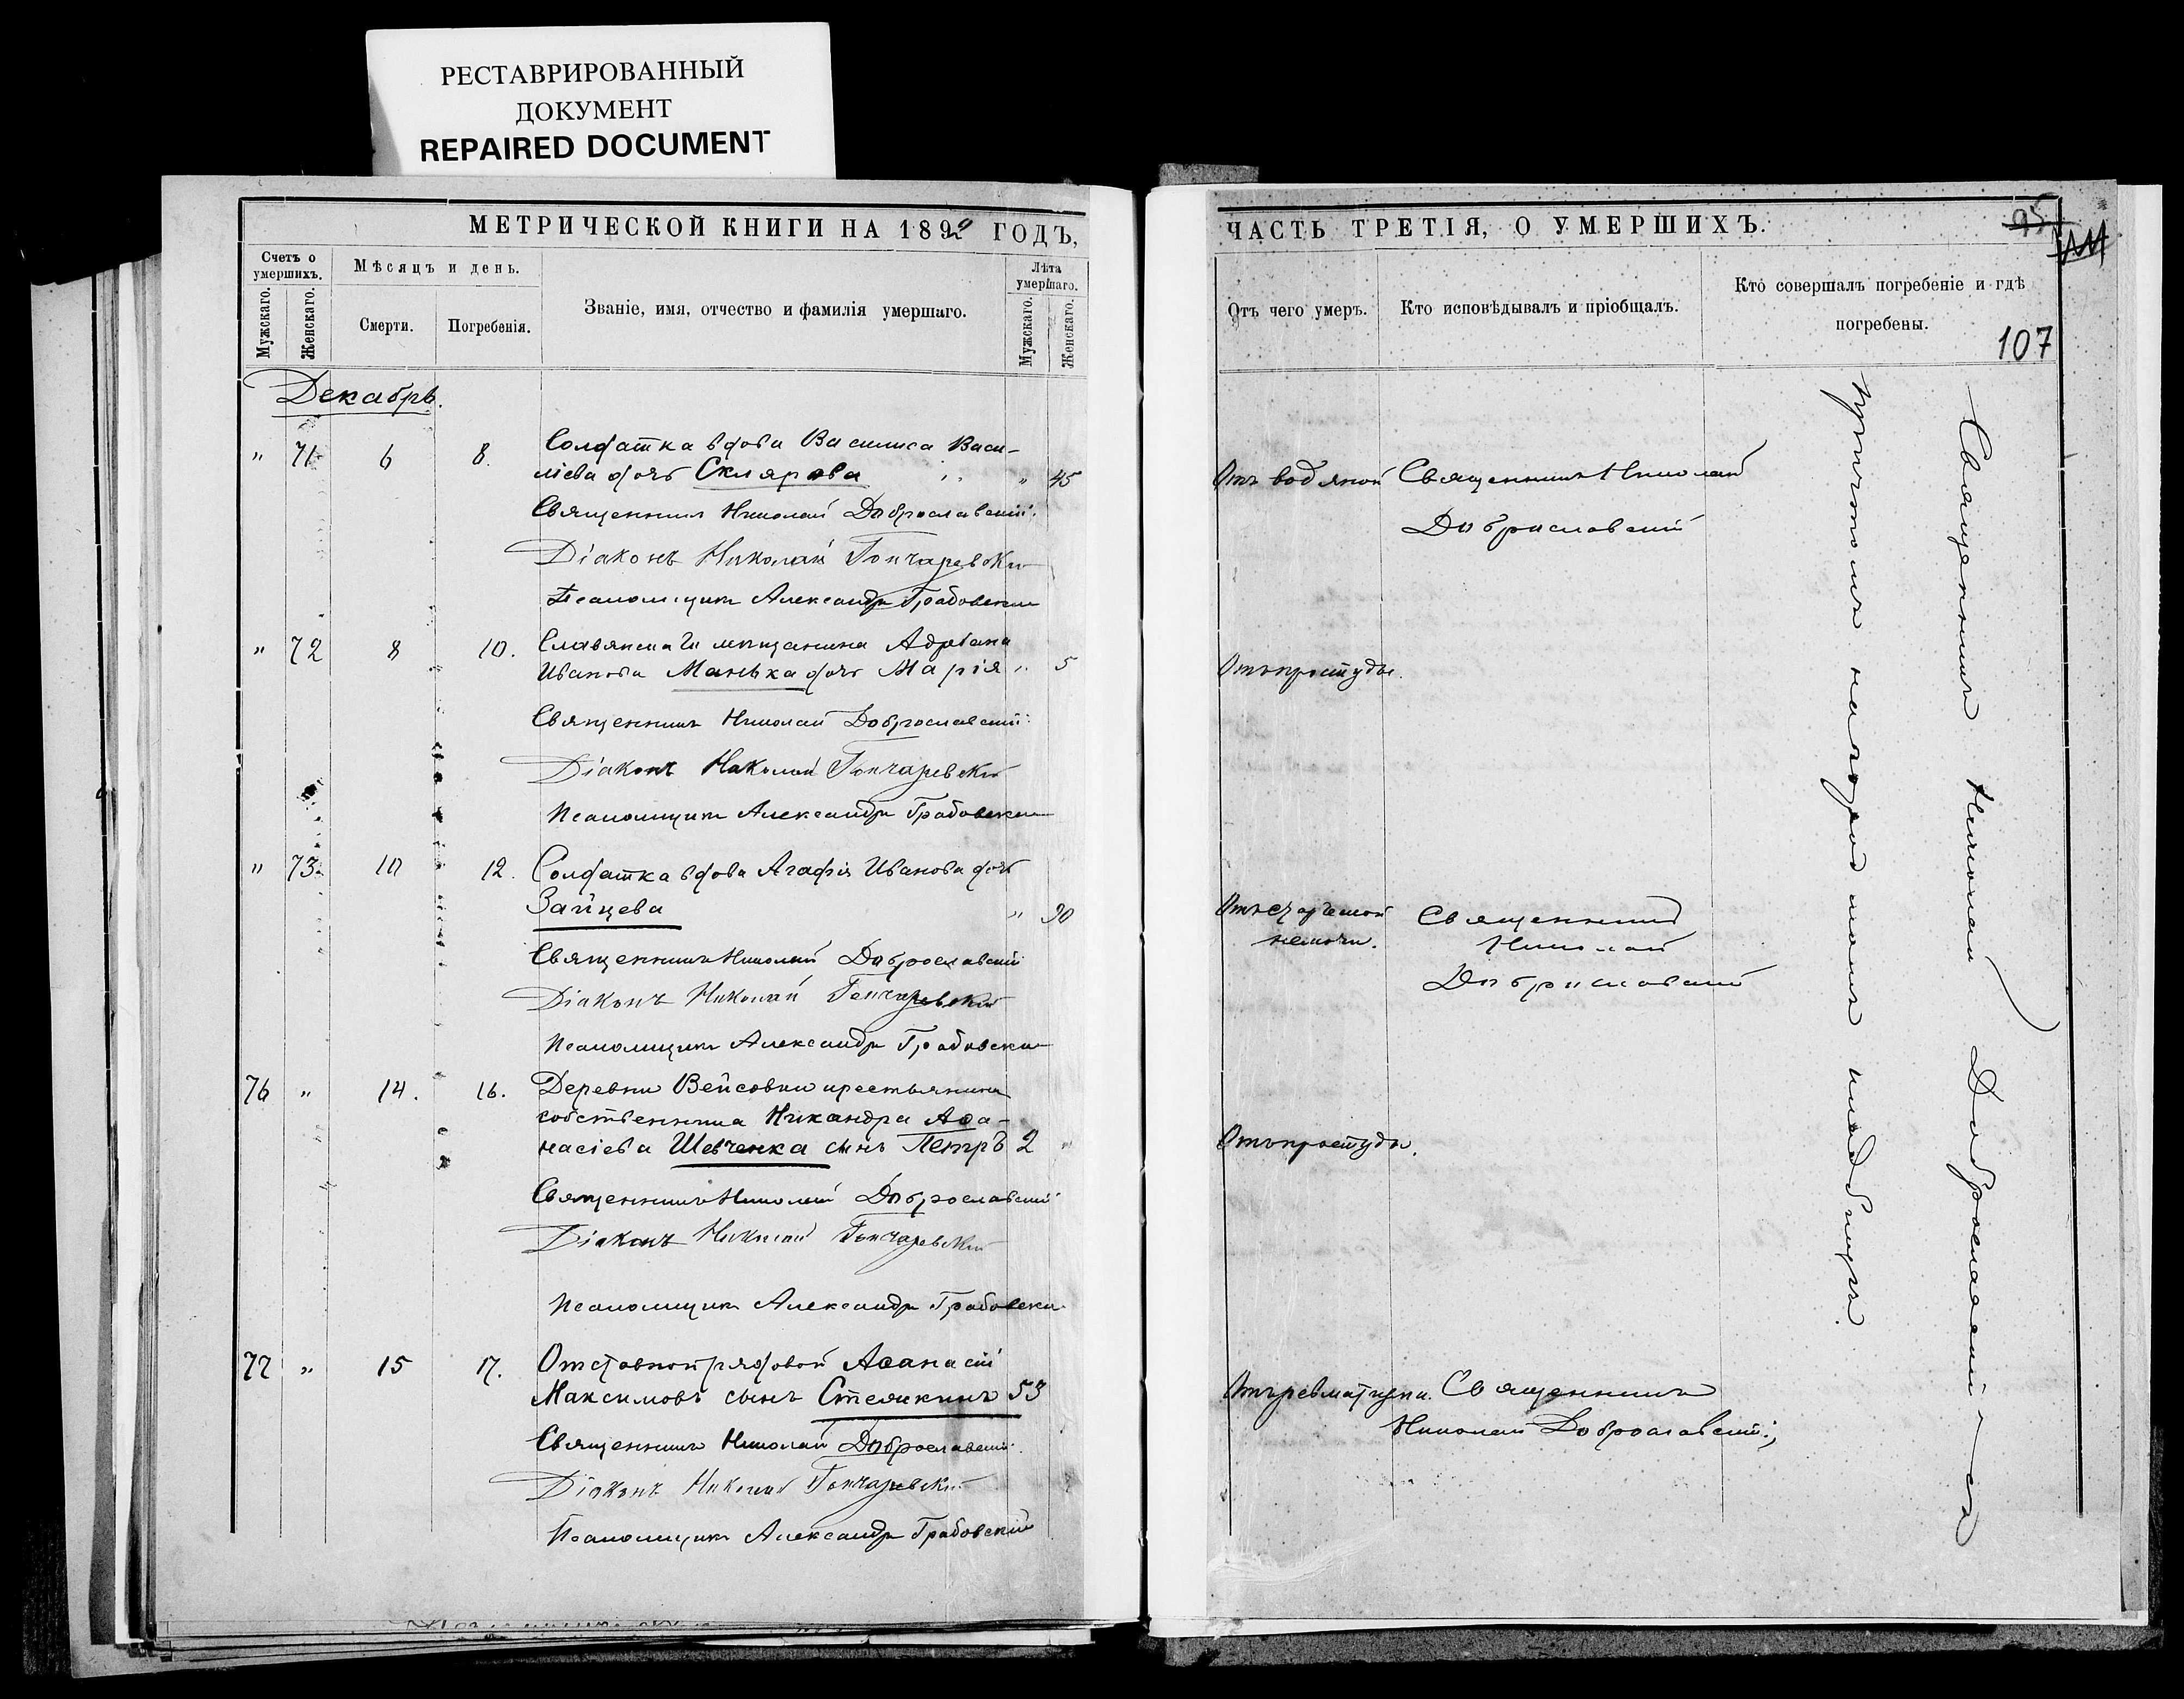 РЕСТАВРИРОВАННЫЙ
ДОКУМЕНТ
REPAIRED DOCUMENT
МЕТРИЧЕСКОЙ КНИГИ НА 1892 ГОДЪ,
Счетъ о умершихъ.
Мужскаго.
Женскаго.
Мѣсяцъ и день.
Смерти.
Погребенія.
Званіе, имя, отчество и фамилія умершаго.
Лѣта умершаго.
Мужскаго.
Женскаго.
Декабрь.
" 71 6 8. Солдатка вдова Василиса Васи-
ліева дочь Склярова " 45
Священникъ Николай Доброславскій.
Діаконъ Николай Гончаревскій
Псаломщикъ Александръ Грабовскій
" 72 8 10. Славянскаго мѣщанина Адріана
Иванова Манька дочь Марія " 5
Священникъ Николай Доброславскій
Діаконъ Николай Гончаревскій
Псаломщикъ Александръ Грабовскій
" 73 10 12. Солдатка вдова Агафія Иванова дочь
Зайцева " 90
Священникъ Николай Доброславскій
Діаконъ Николай Гончаревскій
Псаломщикъ Александръ Грабовскій
76 " 14. 16. Деревни Вейсовки крестьянина
собственника Никандра Аѳа-
насіева Шевченка сынъ Петръ 2 "
Священникъ Николай Доброславскій
Діаконъ Николай Гончаревскій
Псаломщикъ Александръ Грабовскій
77 " 15 17. Отставной рядовой Аѳанасій
Максимовъ сынъ 53
Священникъ Николай Доброславскій.
Діаконъ Николай Гончаревскій
Псаломщикъ Александръ Грабовскій
ЧАСТЬ ТРЕТІЯ, О УМЕРШИХЪ.
95
Отъ чего умеръ.
Кто исповѣдывалъ и пріобщалъ.
Кто совершалъ погребеніе и гдѣ
погребены.
107
Отъ водяной Священникъ Николай
Доброславскій
Отъ простуды.
Отъ старческой Священникъ
немочи. Николай
Доброславскій
Отъ простуды.
Отъ ревматизма. Священникъ
Николай Доброславскій;
Священникъ Николай Доброславскій съ
причтомъ на приходскомъ кладбищѣ.